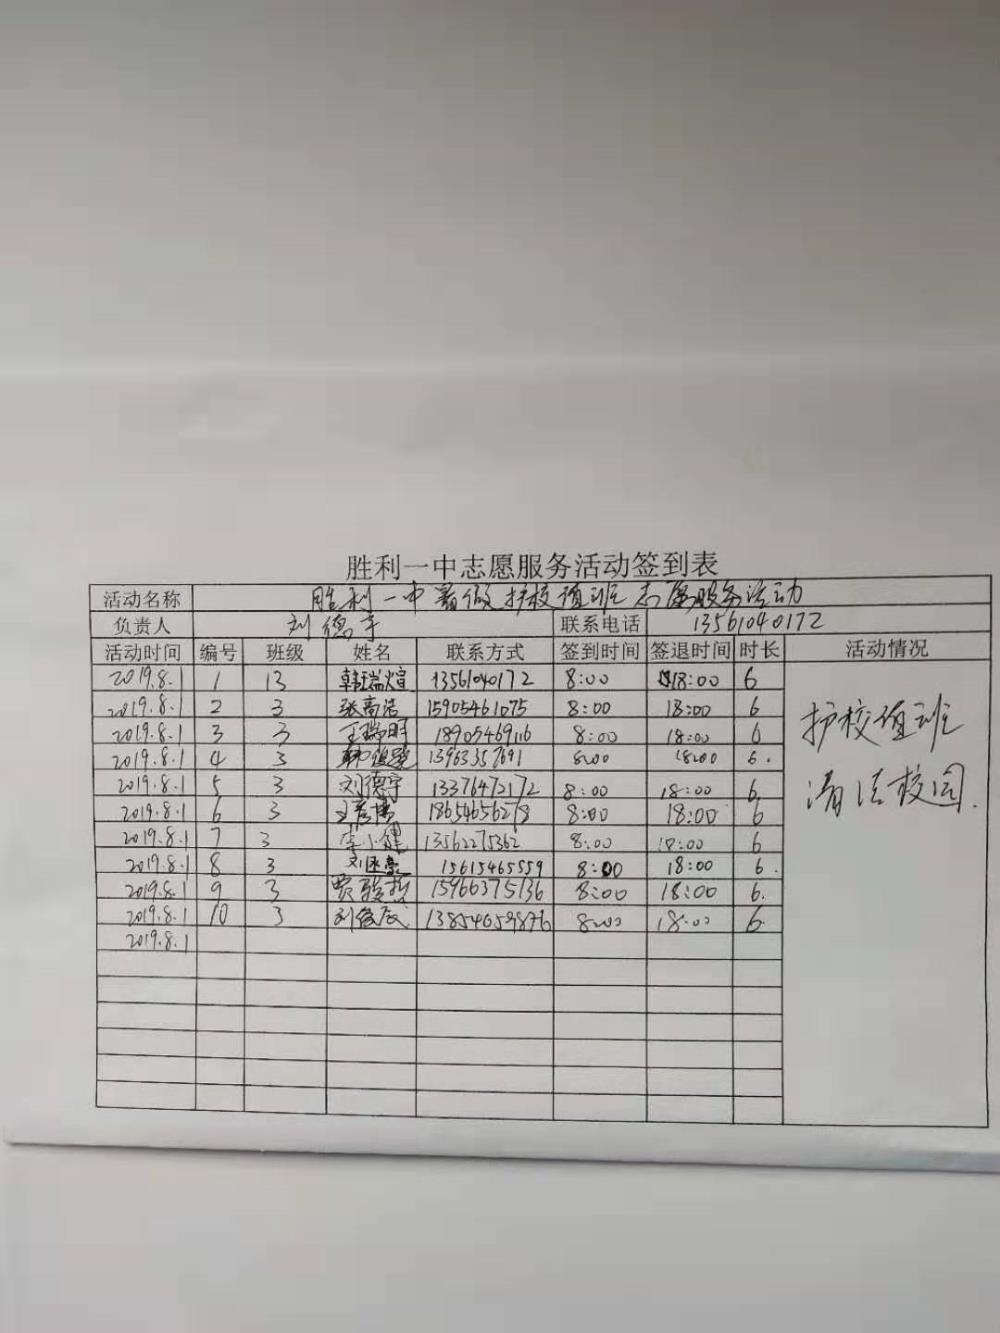 胜利一中志愿服务活动签到表
活动名称 胜利一中暑假护校值班志愿服务活动
负责人 刘德宇 联系电话 13561040172
活动时间 编号 班级 姓名 联系方式 签到时间 签退时间 时长 活动情况
2019.8.1 1 13 韩瑞煊 13561040172 8:00 18:00 6
2019.8.1 2 3 张高洁 15905461075 8:00 18:00 6
2019.8.1 3 3 王瑞明 18905469116 8:00 18:00 6
2019.8.1 4 3 13963357691 8:00 18:00 6.
2019.8.1 5 3 刘德宇 13376472172 8:00 18:00 6
2019.8.1 6 3 18654656278 8:00 18:00 6
2019.8.1 7 3 李小健 13562275362 8:00 18:00 6
2019.8.1 8 3 15615465559 8:00 18:00 6.
2019.8.1 9 3 15966375136 8:00 18:00 6.
2019.8.1 10 3 刘俊辰 13854659876 8:00 18:00 6
2019.8.1
护校值班
清洁校园.